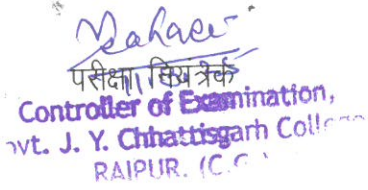 परीक्षा नियंत्रक
Controller of Examination,
ovt. J. Y. Chhattisgarh Colle
RAIPUR. (C.G.)